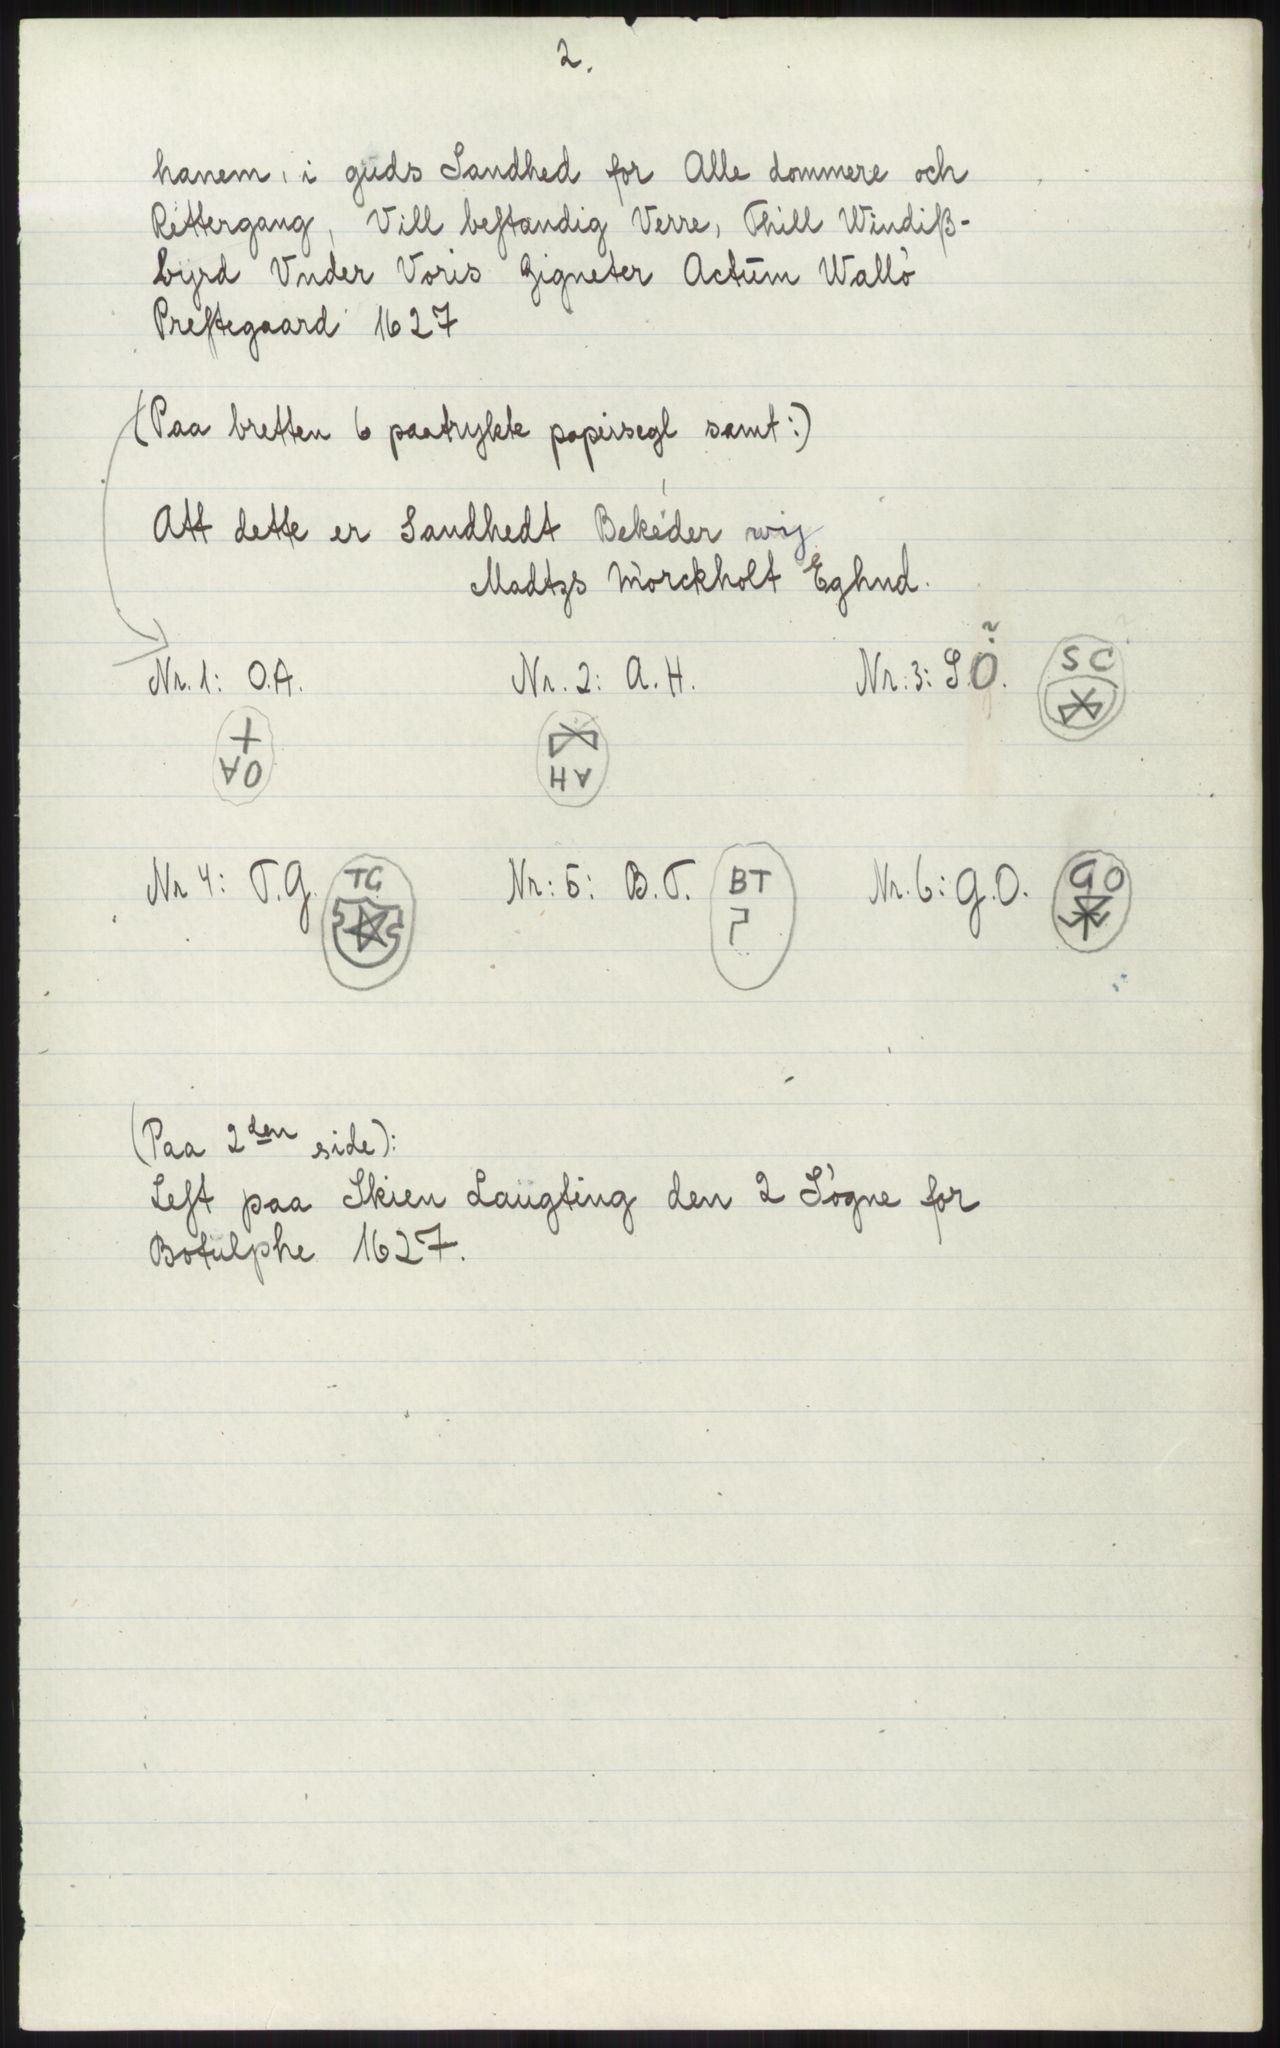 2.
hanem, i guds Sandhed for Alle dommere och
Rettergang, Vill bestandig Verre, Thill Windiß-
byrd Vnder Voris Zigneter Actům Wallö
Prestegaard 1627
(Paa bretten 6 paatrykte papirsegl samt:)
Att dette er Sandhedt Bekéder wij
Madtzs Mörckholt Eghnd.
Nr. 1: O.A. Nr. 2: A.H. Nr. 3: S.O. ? S C
OA AH
Nr 4: T.G. TG Nr: 5: B.T. BT Nr. 6: G.O. GO
(Paa 2den side):
Lest paa Skien Laugting den 2 Sögne for
Botulphe 1627.